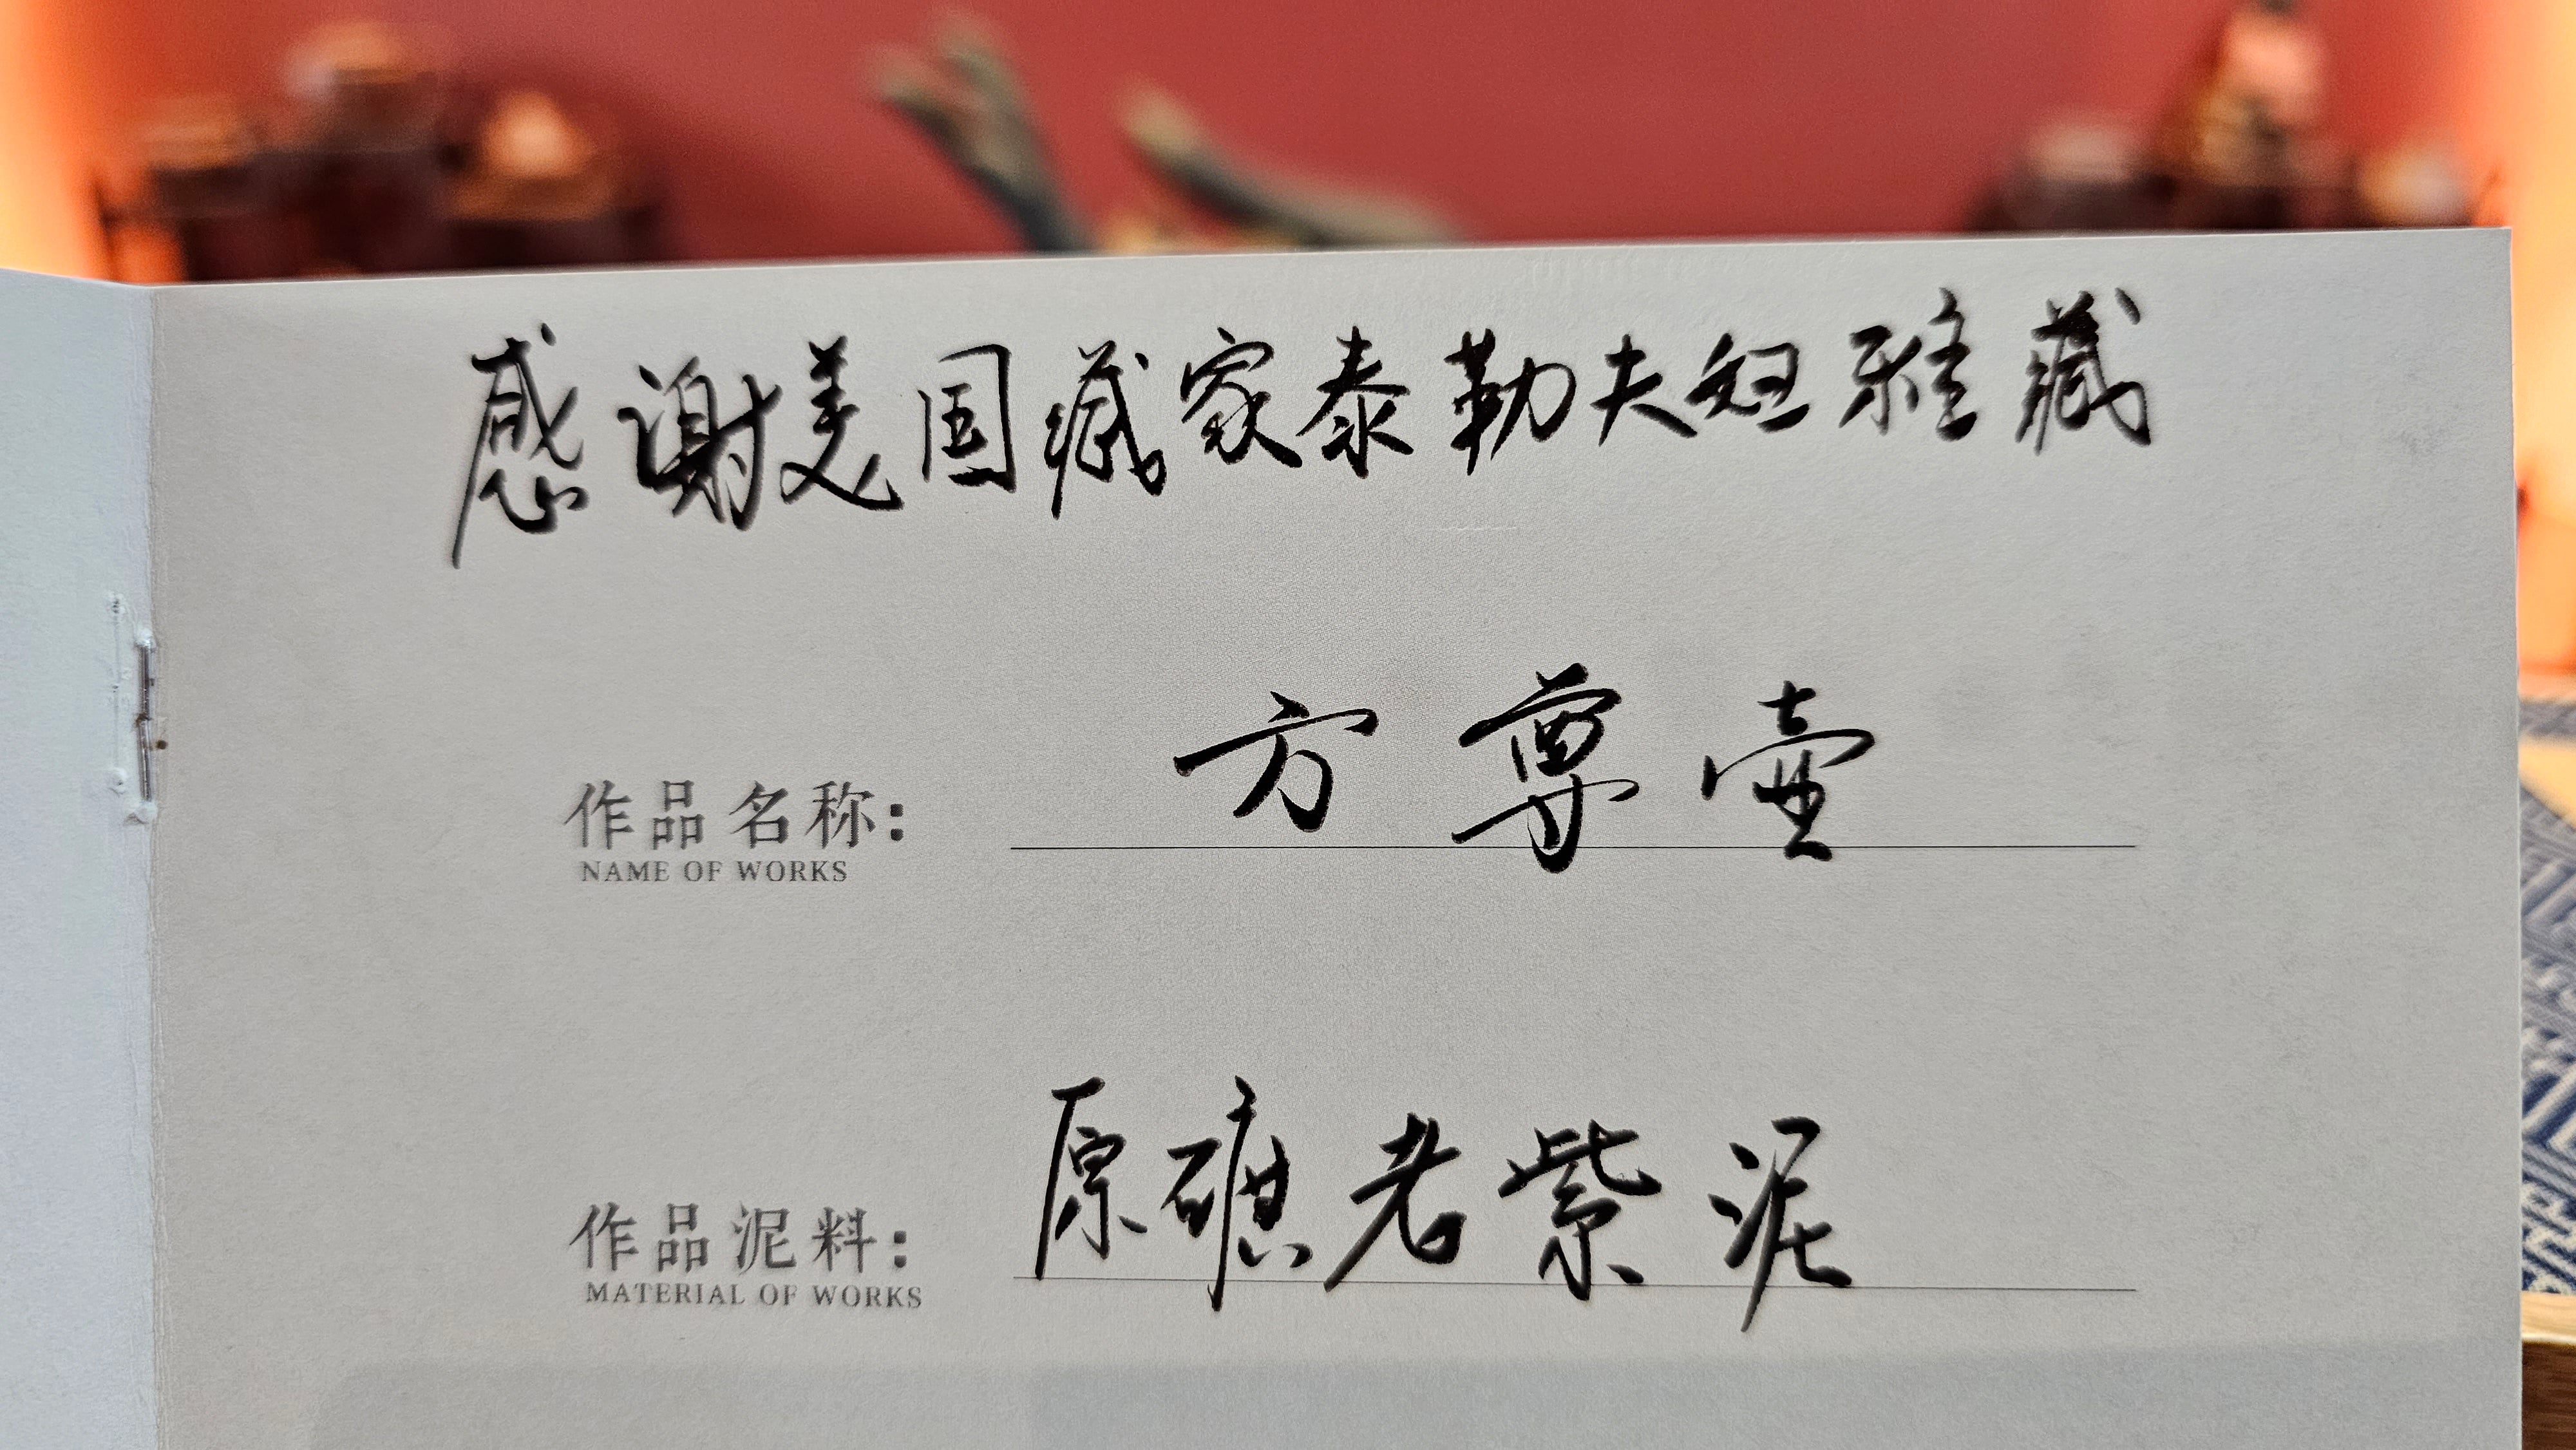 感谢美国藏家泰勒夫妇雅藏
作品名称： 方尊壶
NAME OF WORKS
作品泥料： 原礦老紫泥
MATERIAL OF WORKS